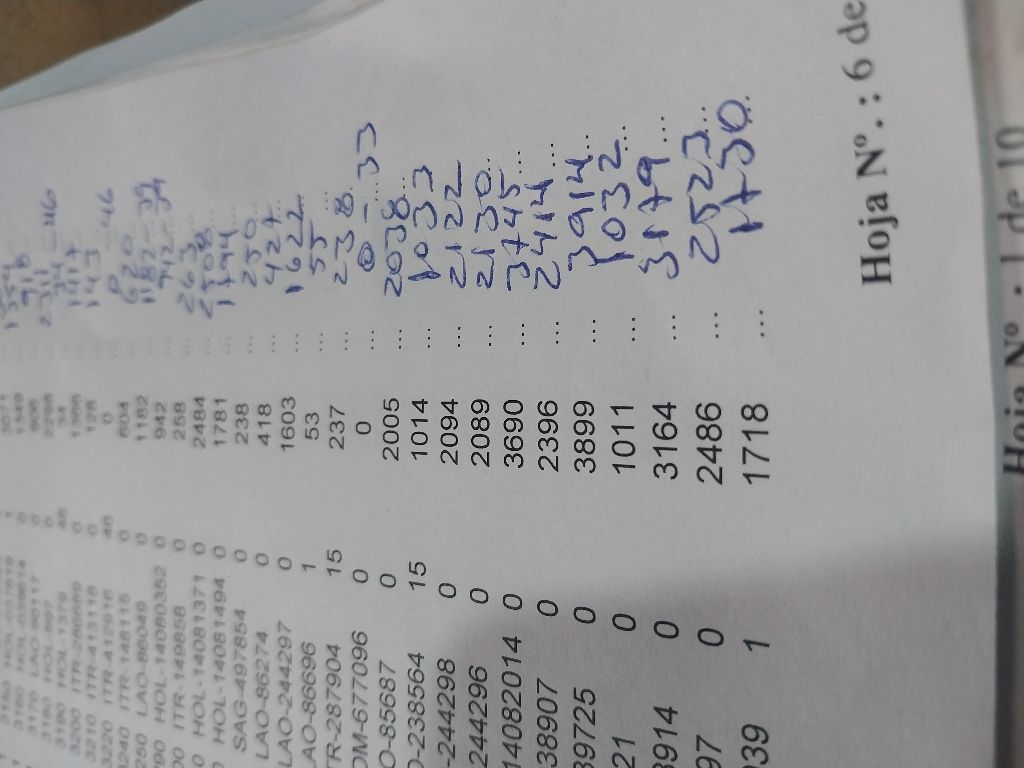 3160 HOL-039614 0 1349 ...
3170 LAO-90117 0 906 ... 918
3180 HOL-897 0 2298 ... 2311
3190 HOL-1379 46 34 ... 34 - 46
3200 ITR-2866685 0 ... 1417
3210 ITR-413118 0 128 ... 143
3220 ITR-412916 46 0 ... 0 - 46
3240 ITR-148115 0 604 ... 620
250 LAO-86049 0 1182 ... 1182-34
790 HOL-14080352 0 942 ... 942-34
00 ITR-149858 0 258 ... 263
0 HOL-14081371 0 2484 ... 2508
0 HOL-14081494 0 1781 ... 1794
SAG-497854 0 238 ... 250
LAO-86274 0 418 ... 427
LAO-244297 0 1603 ... 1622
AO-86696 1 53 ... 55
TR-287904 15 237 ... 238
OM-677096 0 0 ... 0 - 33
O-85687 0 2005 ... 2038
O-238564 15 1014 ... 1033
-244298 0 2094 ... 2122
244296 0 2089 ... 2130
14082014 0 3690 ... 3745
38907 0 2396 ... 2414
39725 0 3899 ... 3914
21 0 1011 ... 1032
3914 0 3164 ... 3179
97 0 2486 ... 2523
039 1 1718 ... 1730
Hoja Nº. : 6 de
Hoja Nº. : 1 de 10